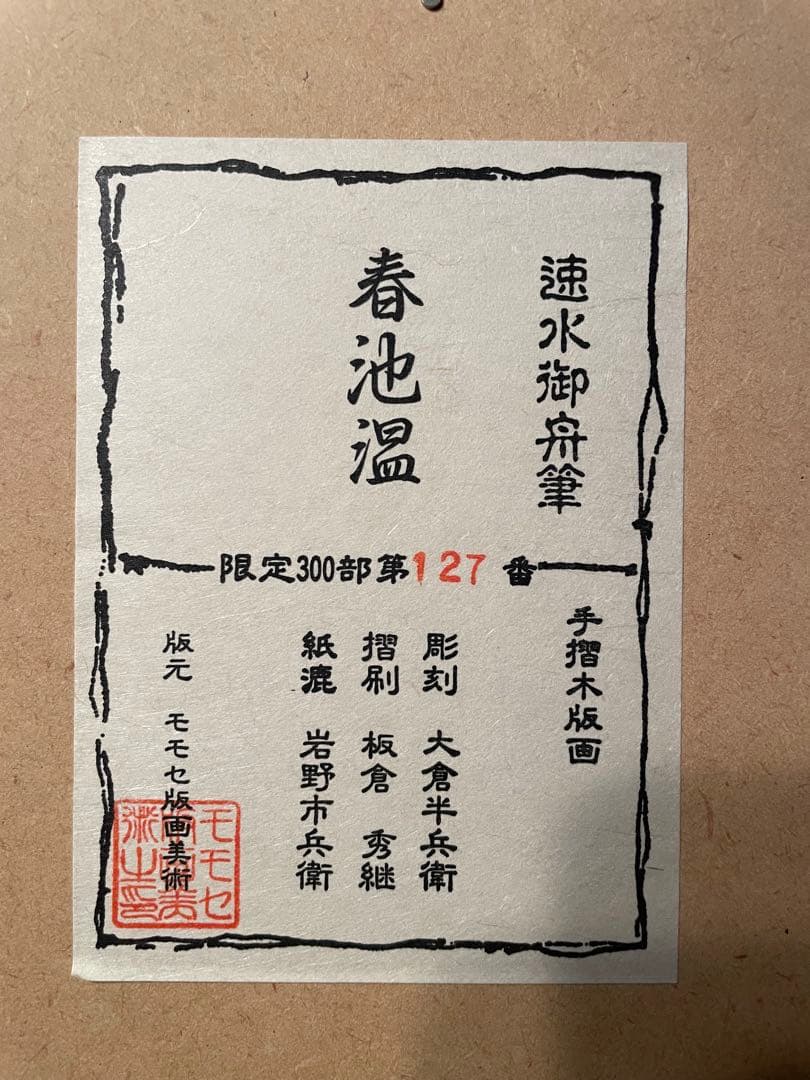 速水御舟筆
春池温
限定300部第127番
手摺木版画
彫刻 大倉半兵衛
摺刷 板倉 秀継
紙漉 岩野市兵衛
版元 モモセ版画美術
モモセ
版画美
術之印